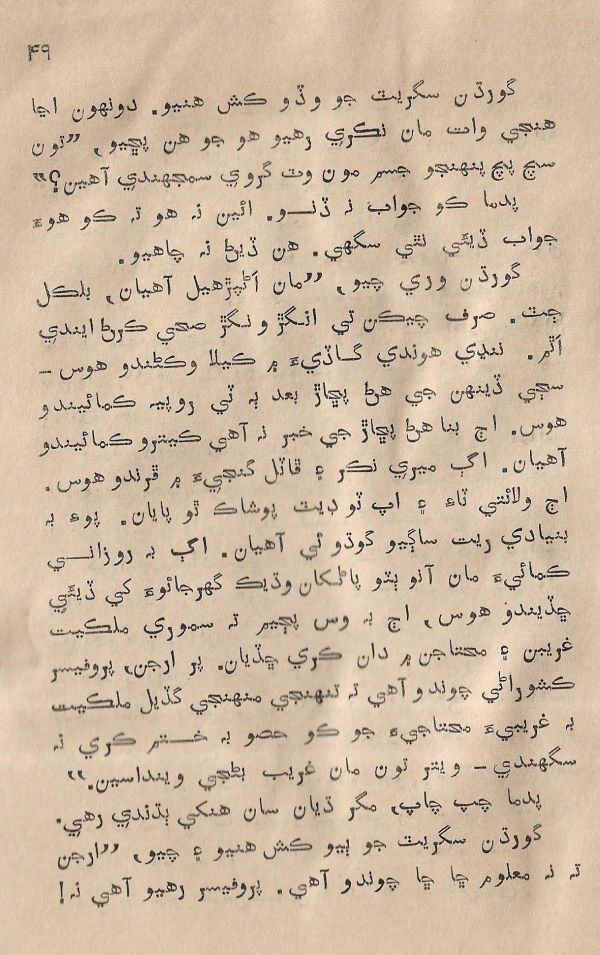 ۴۹
گورڌن سگريٽ جو وڏو ڪش هنيو. دونهون اڃا
هنجي وات مان نڪري رهيو هو جو هن پڇيو, ”تون
سچ پچ پنهنجو جسم مون وٽ گروي سمجهندي آهين؟“
پدما ڪو جواب نہ ڏنو. ائين نہ هو تہ ڪو هوءَ
جواب ڏيئي نٿي سگهي. هن ڏيڻ نہ چاهيو.
گورڌن وري چيو, ”مان اَڻپڙهيل آهيان, بلڪل
جٽ. صرف چيڪن تي انگڙ ونگڙ صحي ڪرڻ ايندي
اٿم. ننڍي هوندي گاڏيءَ ۾ ڪيلا وڪڻندو هوس -
سڄي ڏينهن جي هڻ پڇاڙ بعد ٻہ ٽي روپيہ ڪمائيندو
هوس. اڄ بنا هڻ پڇاڙ جي خبر نہ آهي ڪيترو ڪمائيندو
آهيان. اڳ ميري نڪر ۽ ڦاٽل گنجيءَ ۾ ڦرندو هوس.
اڄ ولائتي ٽاءِ ۽ اپ ٽو ڊيٽ پوشاڪ ٿو پايان. پوءِ بہ
بنيادي ريت ساڳيو گوڌو ئي آهيان. اڳ بہ روزاني
ڪمائيءَ مان آنو ٻٽو پاڻکان وڌيڪ گهرجائوءَ کي ڏيئي
ڇڏيندو هوس, اڄ بہ وس پڄيم تہ سموري ملڪيت
غريبن ۽ محتاجن ۾ دان ڪري ڇڏيان. پر ارجن, پروفيسر
ڪشوراڻي چوندو آهي تہ تنهنجي منهنجي گڏيل ملڪيت
بہ غريبيءَ محتاجيءَ جو ڪو حصو بہ ختم ڪري نہ
سگهندي - ويتر تون مان غريب بڻجي وينداسين.“
پدما چپ چاپ, مگر ڌيان سان هنکي ٻڌندي رهي.
گورڌن سگريٽ جو ٻيو ڪش هنيو ۽ چيو, ”ارجن
تہ نہ معلوم ڇا ڇا چوندو آهي. پروفيسر رهيو آهي نہ!